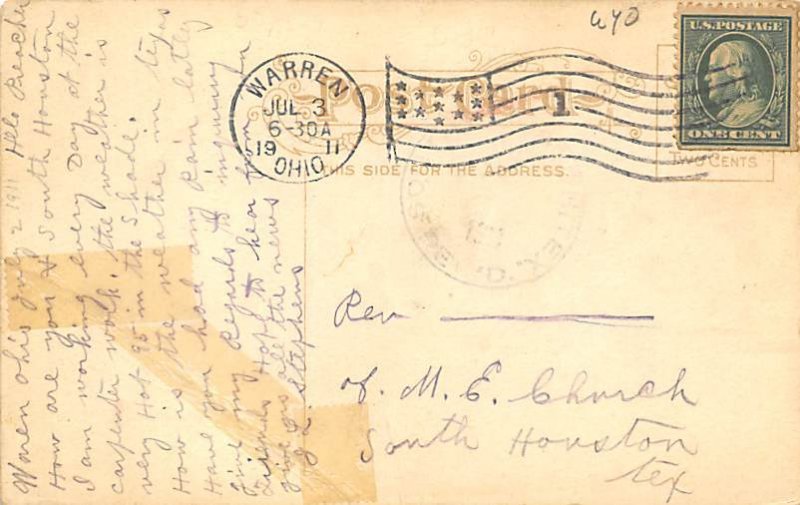 Warren Ohio July 2 1911 Hello Preacher
How are you & South Houston
I am working every Day at the
carpenter work. the weather is
very Hot 95 in the Shade.
How is the weather in texas
Have you had any Rain latley
give my Regards to inquiring
friends Hope to hear from
give us all the news
Stephens
WARREN
JUL 3
6-30A
1911
OHIO
Post Card
1
THIS SIDE FOR THE ADDRESS.
U.S. POSTAGE
ONE CENT
TWO CENTS
Rev
of M. E. Church
South Houston
Tex